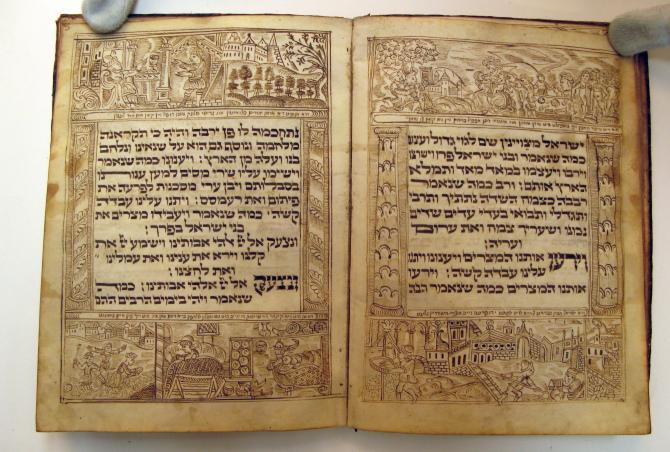 ישראל מצויינין שם לגוי גדול ועצום
כמה שנאמר ובני ישראל פרו וישרצו
וירבו ויעצמו במאד מאד ותמלא
הארץ אותם: ורב כמה שנאמר
רבבה כצמח השדה נתתיך ותרבי
ותגדלי ותבואי בעדי עדים שדים
נכונו ושעריך צמח ואת ערום
ועריה:
וירעו אותנו המצרים ויענונו ויתנו
עלינו עבדה קשה: וירעו
אותנו המצרים כמה שנאמר הבה
נתחכמה לו פן ירבה והיה כי תקראנה
מלחמה ונוסף גם הוא על שנאינו ונלחם
בנו ועלה מן הארץ: ויענונו כמה שנאמר
וישימו עליו שרי מסים למען ענותו
בסבלותם ויבן ערי מסכנות לפרעה את
פיתום ואת רעמסס: ויתנו עלינו עבדה
קשה: כמה שנאמר ויעבידו מצרים את
בני ישראל בפרך:
ונצעק אל יי אלהי אבותינו וישמע יי את
קלנו וירא את ענינו ואת עמלינו
ואת לחצנו:
ונצעק אל יי אלהי אבותינו: כמה
שנאמר ויהי בימים הרבים ההם